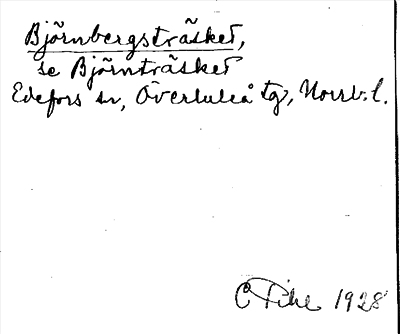 Björnbergsträsket,
se Björnträsket
Edefors sn, Överluleå tg, Norrb. l.
C Pihl 1928